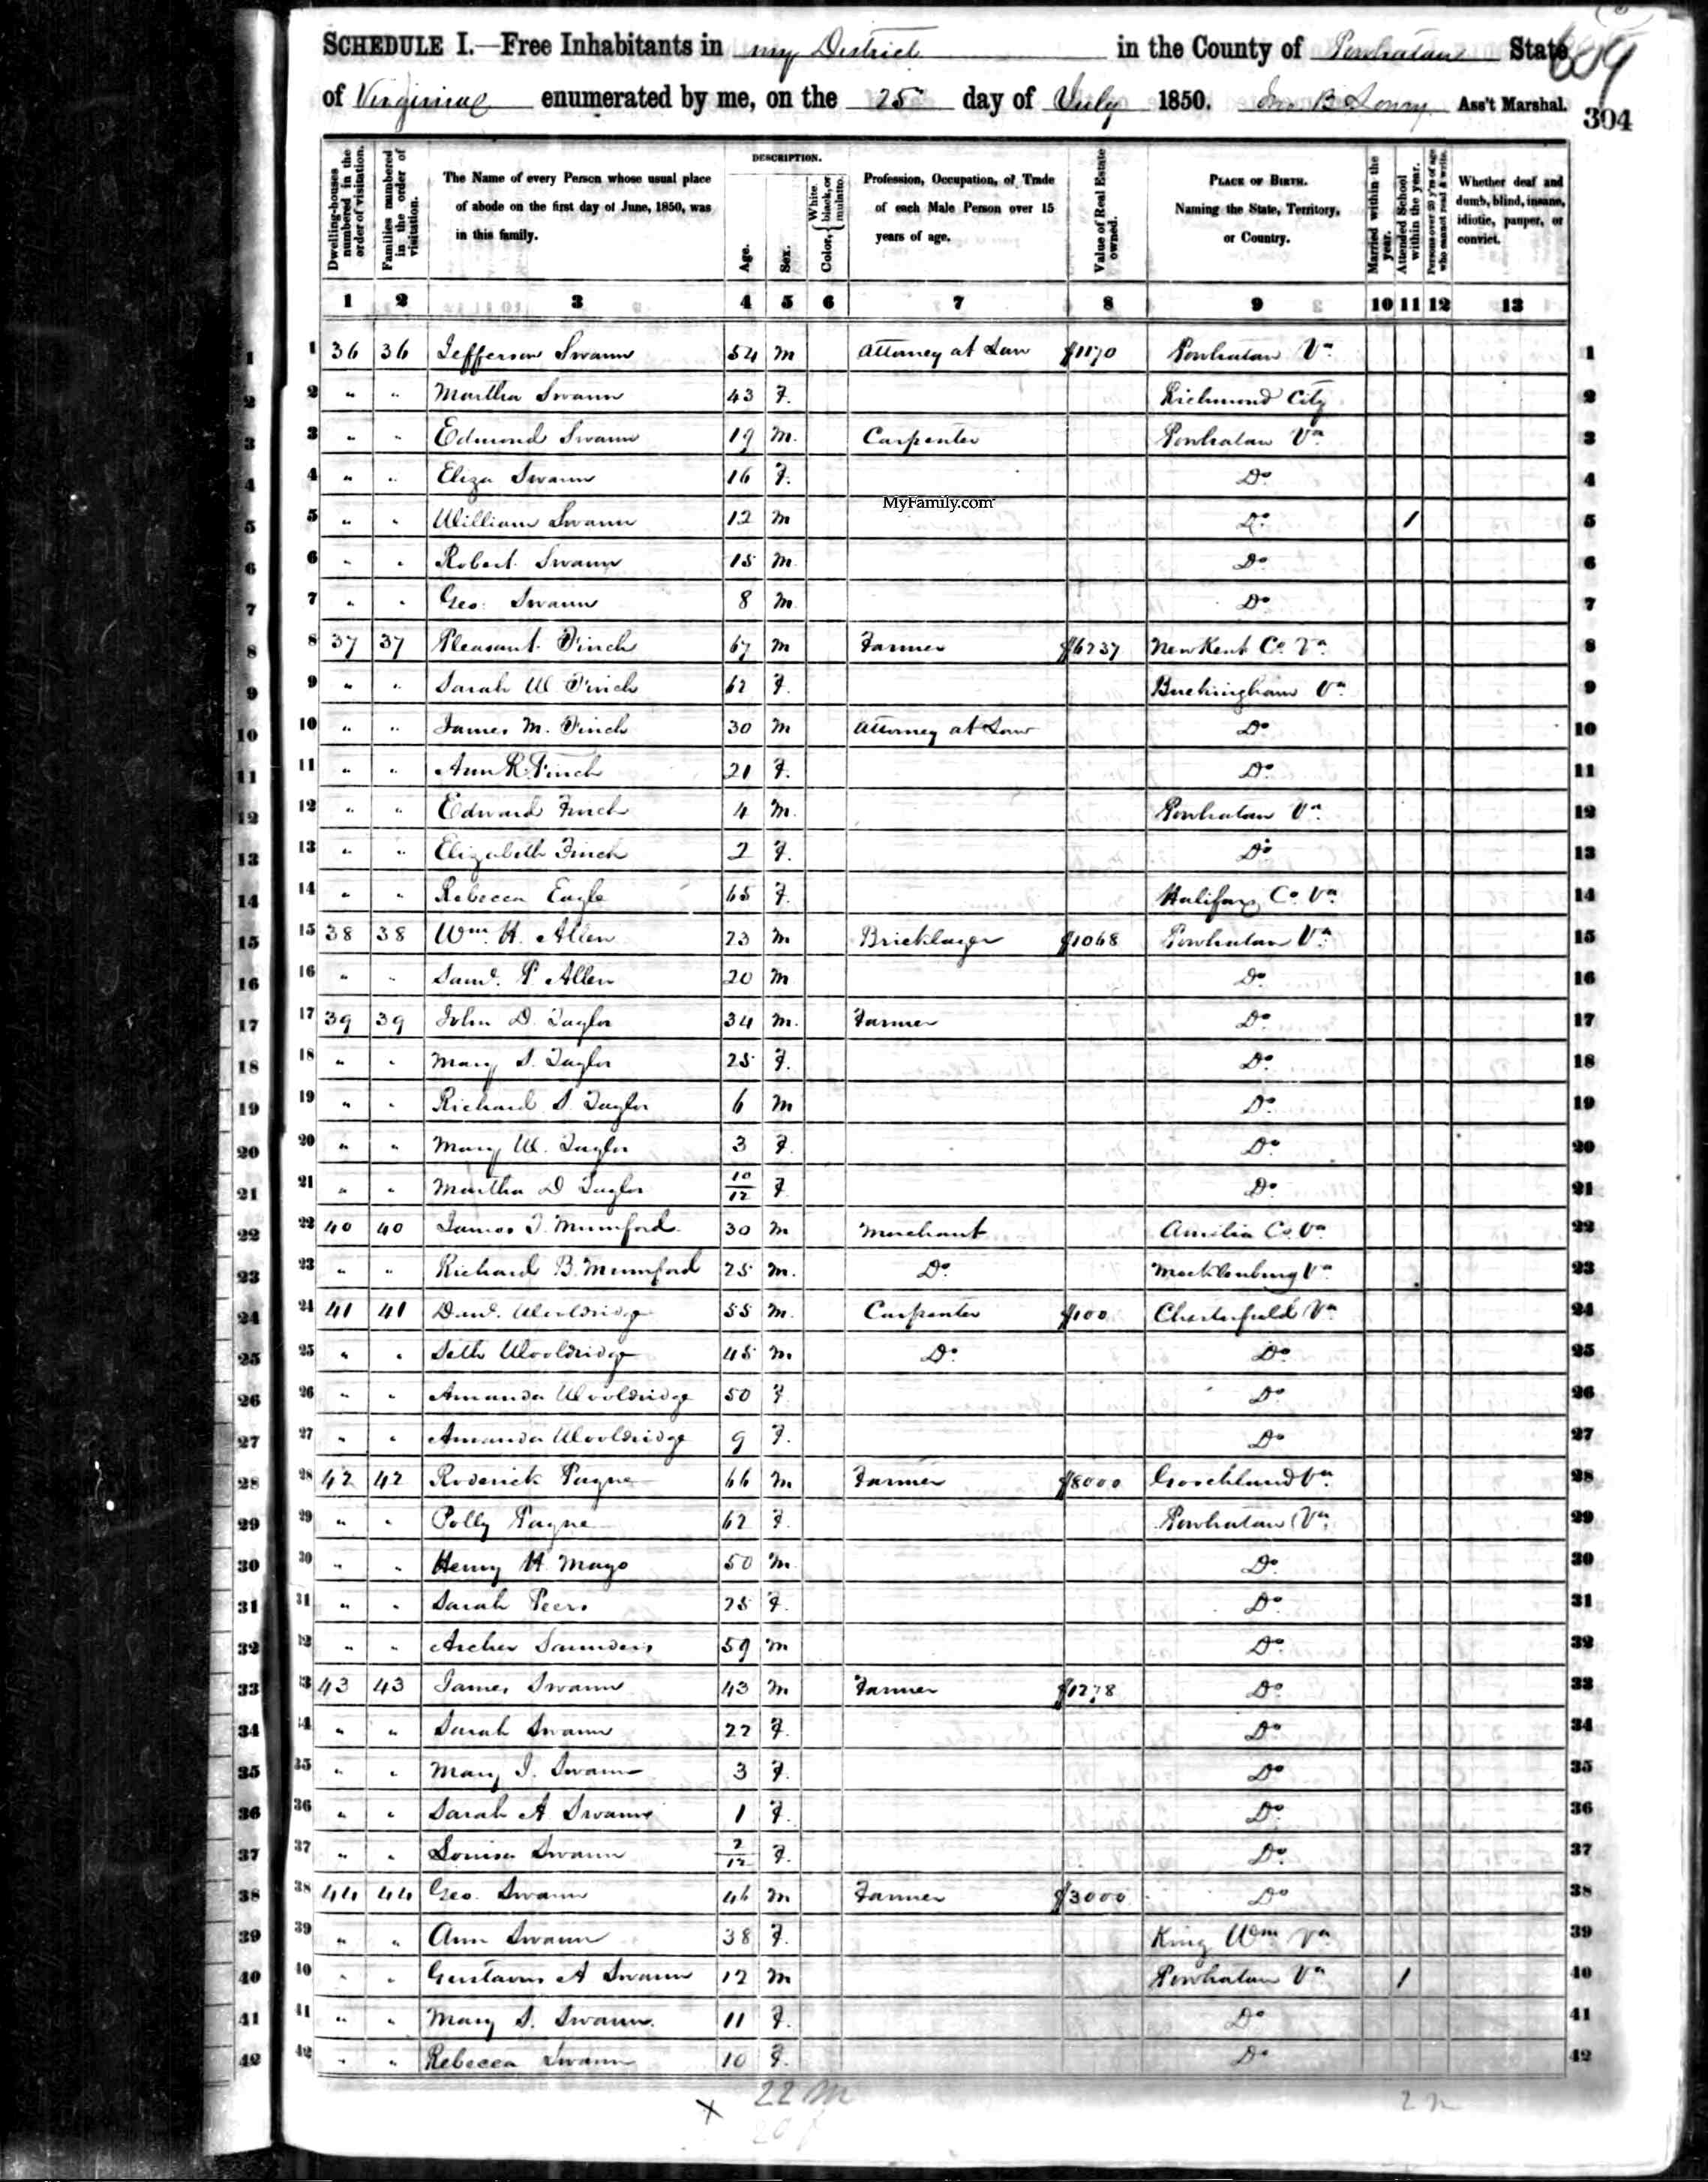 SCHEDULE I.—Free Inhabitants in my District in the County of Powhatan State
of Virginia enumerated by me, on the 25 day of July 1850. Ass't Marshal.
304
Dwelling-houses numbered in the order of visitation.
Families numbered in the order of visitation.
The Name of every Person whose usual place of abode on the first day of June, 1850, was in this family.
DESCRIPTION.
Age.
Sex.
Color, White, black, or mulatto.
Profession, Occupation, or Trade of each Male Person over 15 years of age.
Value of Real Estate owned.
PLACE OF BIRTH. Naming the State, Territory, or Country.
Married within the year.
Attended School within the year.
Persons over 20 y'rs of age who cannot read & write.
Whether deaf and dumb, blind, insane, idiotic, pauper, or convict.
1 2 3 4 5 6 7 8 9 10 11 12 13
1 36 36 Jefferson Swann 54 M Attorney at Law $1170 Powhatan Va 1
2 " " Martha Swann 43 F. Richmond City 2
3 " " Edmond Swann 19 M. Carpenter Powhatan Va 3
4 " " Eliza Swann 16 F. Do 4
MyFamily.com
5 " " William Swann 12 M Do 1 5
6 " " Robert Swann 15 M Do 6
7 " " Geo: Swann 8 M Do 7
8 37 37 Pleasant Finch 67 M Farmer $6237 New Kent Co Va 8
9 " " Sarah W. Finch 62 F. Buckingham Va 9
10 " " James M. Finch 30 M Attorney at Law Do 10
11 " " Ann R. Finch 21 F. Do 11
12 " " Edward Finch 4 M. Powhatan Va 12
13 " " Elizabeth Finch 2 F. Do 13
14 " " Rebecca Eagle 65 F. Halifax Co Va 14
15 38 38 Wm. H. Allen 23 M Bricklayer $1068 Powhatan Va 15
16 " " Saml. P. Allen 20 M Do 16
17 39 39 John D. Taylor 34 M. Farmer Do 17
18 " " Mary S. Taylor 25 F. Do 18
19 " " Richard S. Taylor 6 M Do 19
20 " " Mary W. Taylor 3 F. Do 20
21 " " Martha D Taylor 10/12 F. Do 21
22 40 40 James T. Mumford 30 M Merchant Amelia Co. Va 22
23 " " Richard B. Mumford 25 M. Do Mecklenburg Va 23
24 41 41 Danl. Wooldridge 55 M. Carpenter $100 Chesterfield Va 24
25 " " Seth Wooldridge 45 M. Do Do 25
26 " " Amanda Wooldridge 50 F. Do 26
27 " " Amanda Wooldridge 9 F. Do 27
28 42 42 Roderick Payne 66 M Farmer $8000 Goochland Va 28
29 " " Polly Payne 62 F. Powhatan Va 29
30 " " Henry H. Mayo 50 M. Do 30
31 " " Sarah Peers 25 F. Do 31
32 " " Archer Saunders 59 M Do 32
33 43 43 James Swann 43 M Farmer $1278 Do 33
34 " " Sarah Swann 22 F. Do 34
35 " " Mary J. Swann 3 F. Do 35
36 " " Sarah A Swann 1 F. Do 36
37 " " Louisa Swann 2/12 F. Do 37
38 44 44 Geo. Swann 46 M Farmer $3000 Do 38
39 " " Ann Swann 38 F. King Wm Va 39
40 " " Gustavus A Swann 12 M Powhatan Va 1 40
41 " " Mary S. Swann 11 F. Do 41
42 " " Rebecca Swann 10 F. Do 42
22 M
20 f